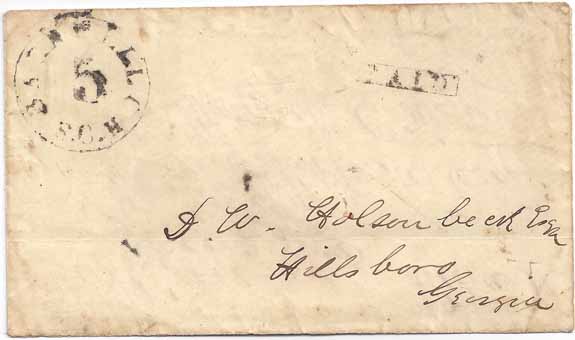 5
S.C.H.
PAID
D. W. Holsonbeck Esqr
Hillsboro
Georgia